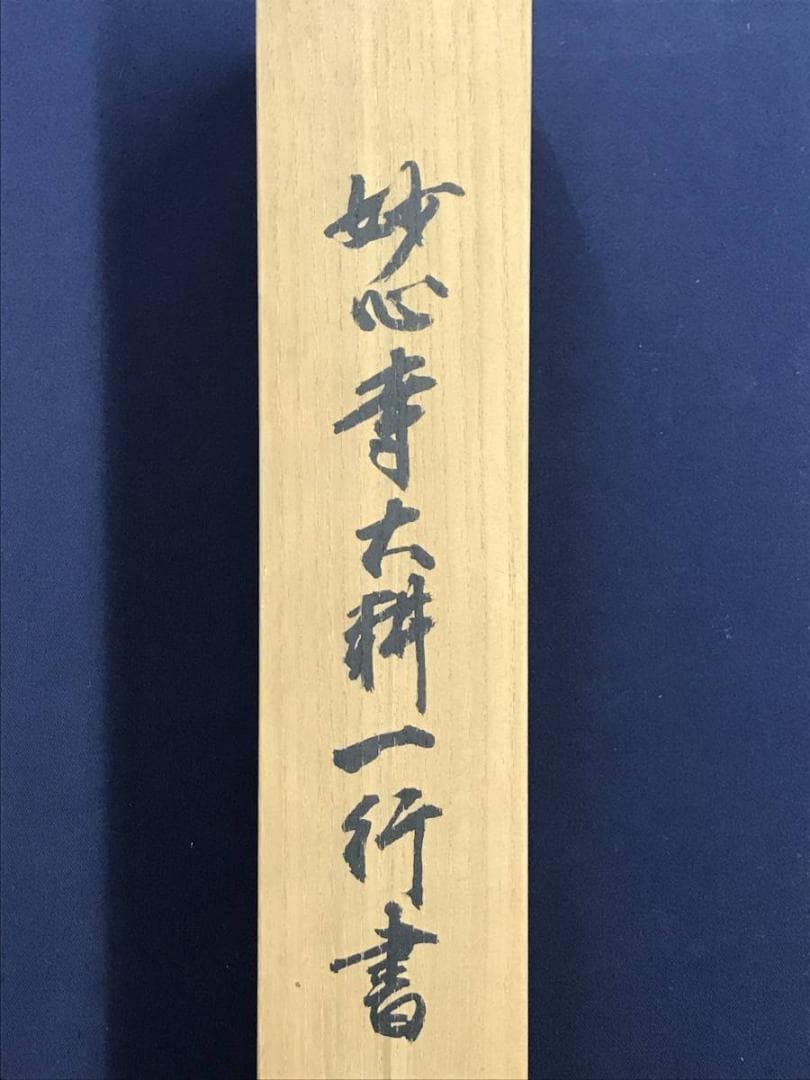 妙心寺大耕一行書